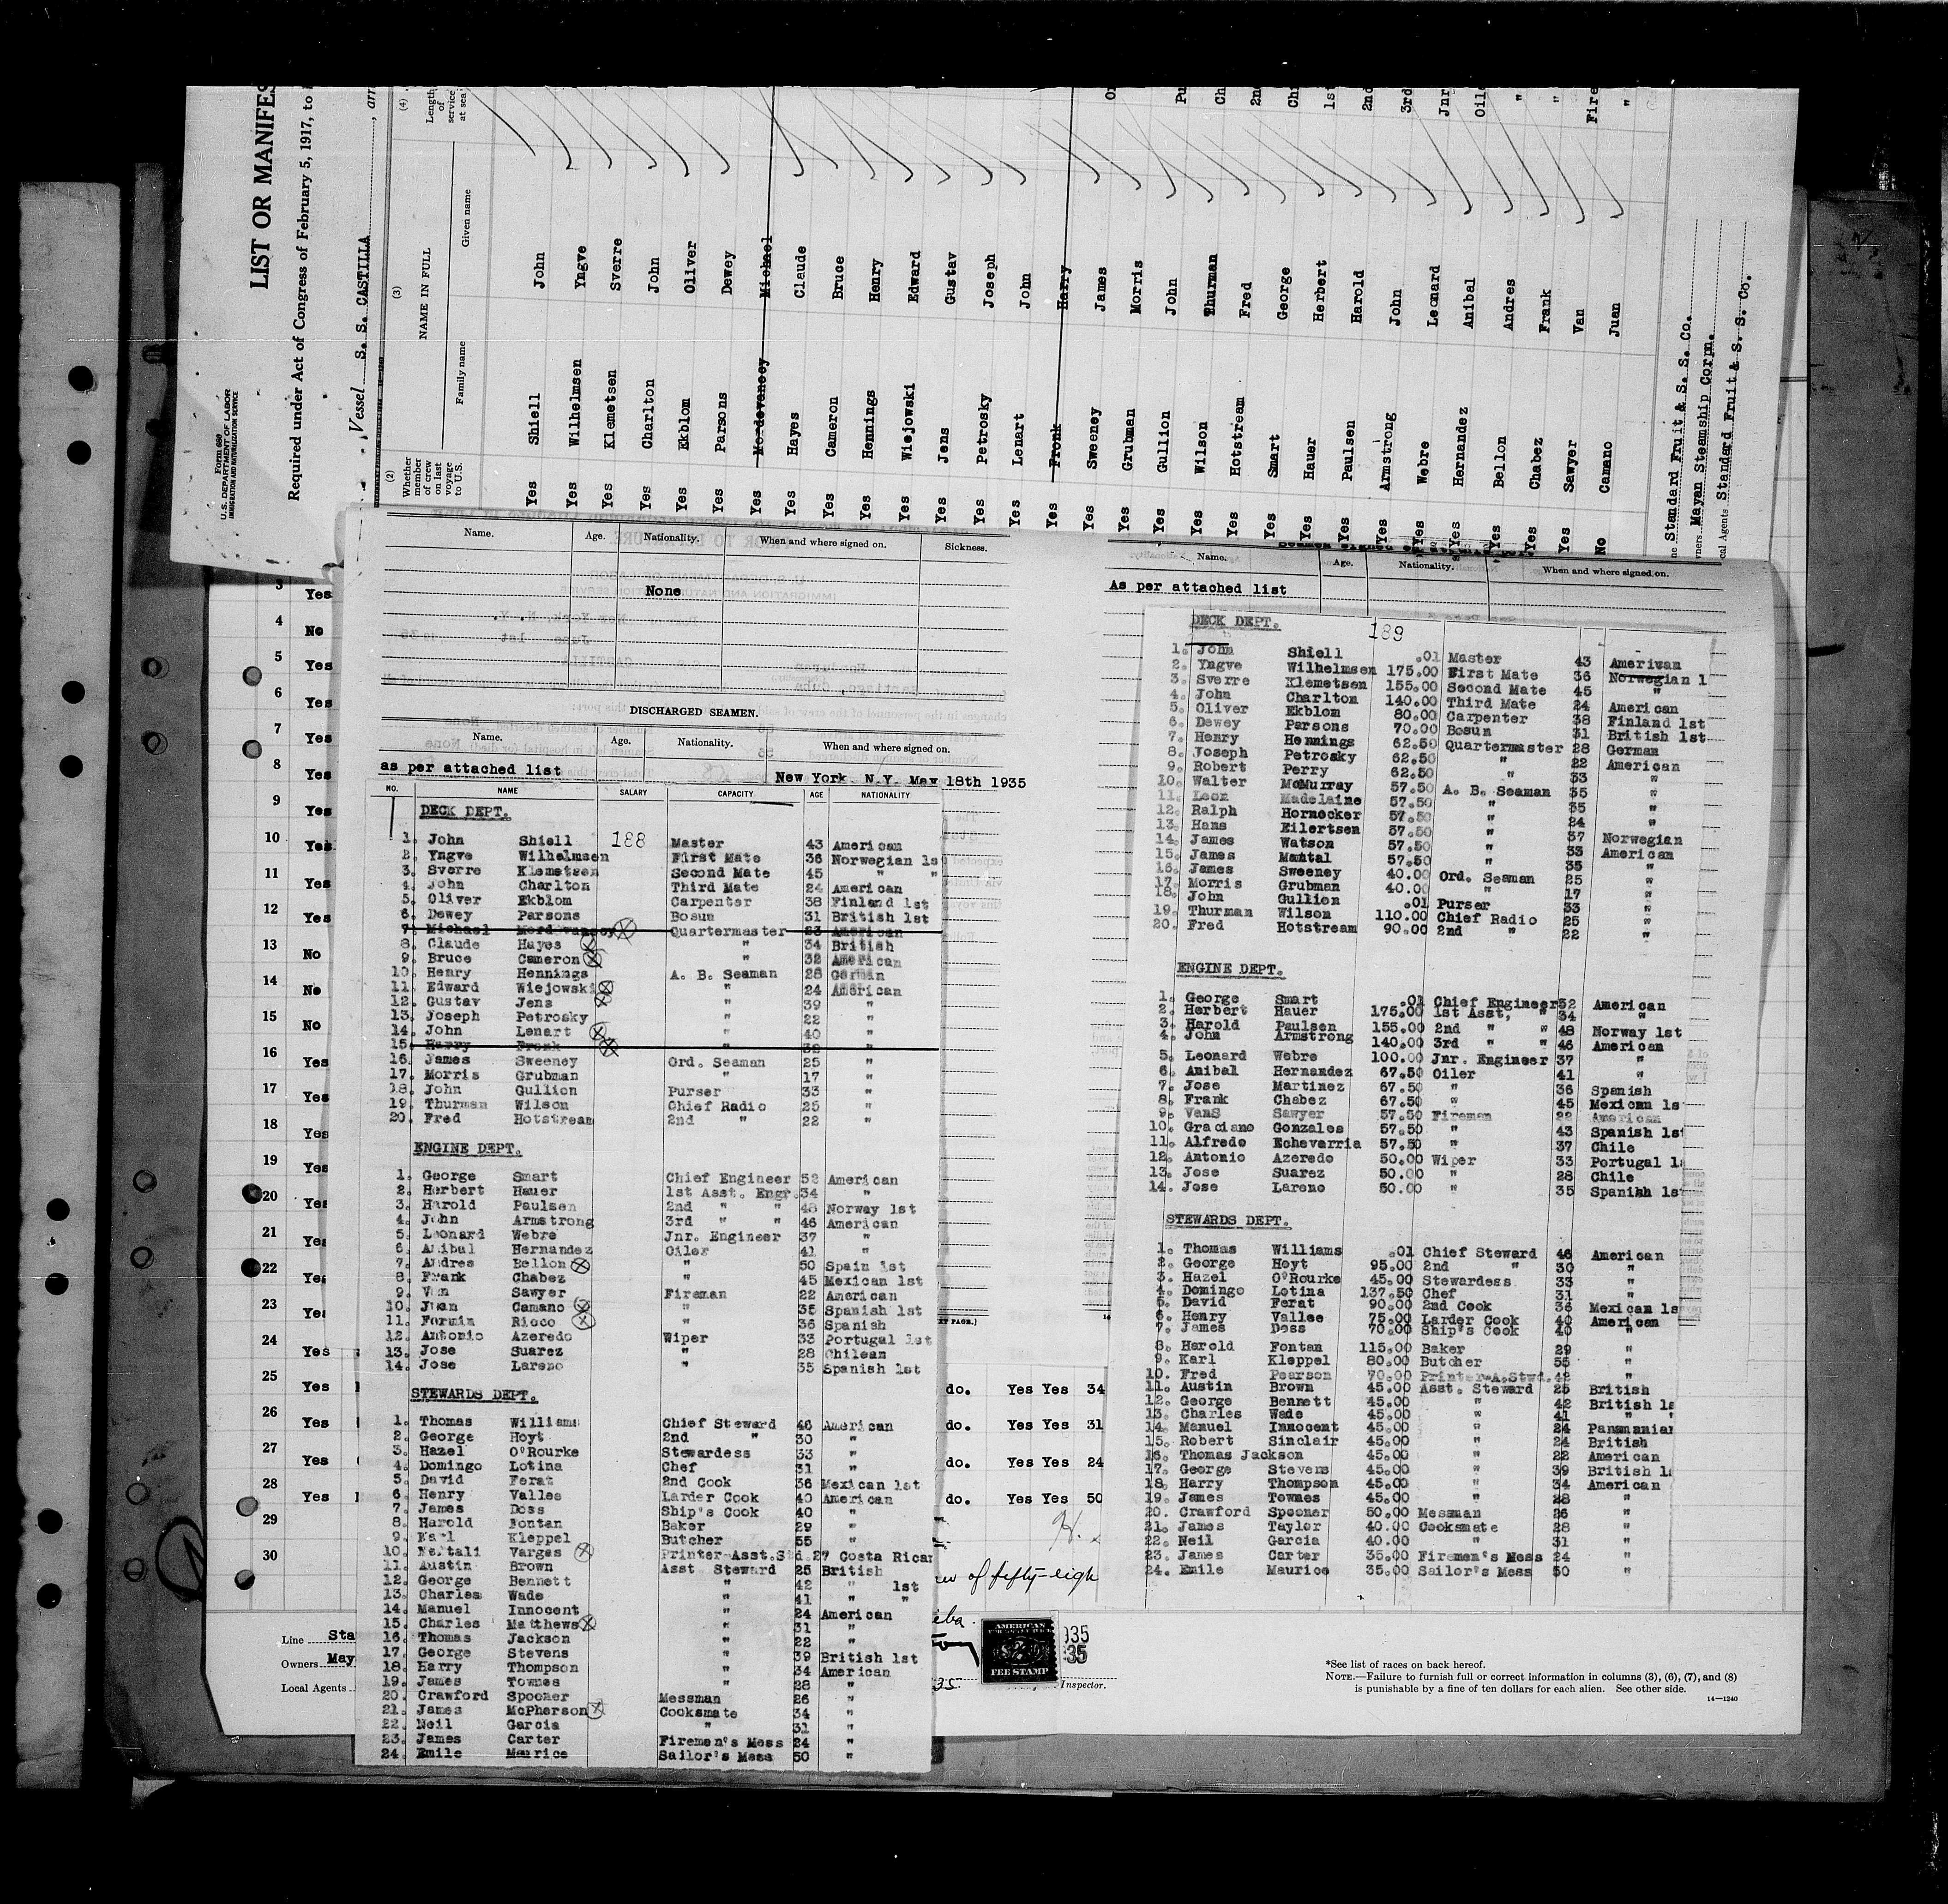 Form 680
U.S. DEPARTMENT OF LABOR
IMMIGRATION AND NATURALIZATION SERVICE
LIST OR MANIFES
Required under Act of Congress of February 5, 1917, to
Vessel S. S. CASTILLA, arr
(2) (3) (4)
Whether member of crew on last voyage to U.S.
NAME IN FULL
Family name Given name
Length of service at sea
Yes Shiell John
Yes Wilhelmsen Yngve
Yes Klemetsen Sverre
Yes Charlton John
Yes Ekblom Oliver
Yes Parsons Dewey
Yes Mordovancey Michael
Yes Hayes Claude
Yes Cameron Bruce
Yes Hennings Henry
Yes Wiejowski Edward
Yes Jens Gustav
Yes Petrosky Joseph
Yes Lenart John
Yes Fronk Harry
Yes Sweeney James Or
Yes Grubman Morris
Yes Gullion John Pu
Yes Wilson Thurman Ch
Yes Hotstream Fred 2nd
Yes Smart George Chi
Yes Hauer Herbert 1st
Yes Paulsen Harold 2nd
Yes Armstrong John 3rd
Yes Webre Leonard Jnr
Yes Hernandez Anibal Oile
Yes Bellon Andres "
Yes Chabez Frank "
Yes Sawyer Van Fire
No Camano Juan "
ne Standard Fruit & S. S. Co.
wners. Mayan Steamship Corpn.
cal Agents Standard Fruit & S. S. Co.
Name. Age. Nationality. When and where signed on. Sickness.
None
DISCHARGED SEAMEN.
Name. Age. Nationality. When and where signed on.
as per attached list
New York N.Y. May 18th 1935
NO. NAME SALARY CAPACITY AGE NATIONALITY
DECK DEPT.
188
1. John Shiell Master 43 American
2. Yngve Wilhelmsen First Mate 36 Norwegian 1s
3. Sverre Klemetsen Second Mate 45 " "
4. John Charlton Third Mate 24 American
5. Oliver Ekblom Carpenter 38 Finland 1st
6. Dewey Parsons Bosun 31 British 1st
7. Michael Mordovancey Quartermaster 23 American
8. Claude Hayes " 34 British
9. Bruce Cameron " 32 American
10. Henry Hennings A. B. Seaman 28 German
11. Edward Wiejowski " 24 American
12. Gustav Jens " 39 "
13. Joseph Petrosky " 22 "
14. John Lenart " 40 "
15. Harry Fronk " 32 "
16. James Sweeney Ord. Seaman 25 "
17. Morris Grubman " 17 "
18. John Gullion Purser 33 "
19. Thurman Wilson Chief Radio 25 "
20. Fred Hotstream 2nd " 22 "
ENGINE DEPT.
1. George Smart Chief Engineer 52 American
2. Herbert Hauer 1st Asst. Engr. 34 "
3. Harold Paulsen 2nd " " 48 Norway 1st
4. John Armstrong 3rd " " 46 American
5. Leonard Webre Jnr. Engineer 37 "
6. Anibal Hernandez Oiler 41 "
7. Andres Bellon " 50 Spain 1st
8. Frank Chabez " 45 Mexican 1st
9. Van Sawyer Fireman 22 American
10. Juan Camano " 35 Spanish 1st
11. Formin Rioco " 36 Spanish
12. Antonio Azeredo Wiper 33 Portugal 1st
13. Jose Suarez " 28 Chilean
14. Jose Lareno " 35 Spanish 1st
STEWARDS DEPT.
1. Thomas Williams Chief Steward 46 American
2. George Hoyt 2nd " 30 "
3. Hazel O'Rourke Stewardess 33 "
4. Domingo Lotina Chef 31 "
5. David Ferat 2nd Cook 36 Mexican 1st
6. Henry Vallee Larder Cook 40 American
7. James Doss Ship's Cook 40 "
8. Harold Fontan Baker 29 "
9. Karl Kleppel Butcher 55 "
10. Neftali Varges Printer-Asst.Std. 27 Costa Rican
11. Austin Brown Asst Steward 25 British
12. George Bennett " 42 " 1st
13. Charles Wade " 41 " "
14. Manuel Innocent " 24 American
15. Charles Matthews " 31 "
16. Thomas Jackson " 22 "
17. George Stevens " 39 British 1st
18. Harry Thompson " 34 American
19. James Townes " 28 "
20. Crawford Spooner Messman 26 "
21. James McPherson Cooksmate 34 "
22. Neil Garcia " 31 "
23. James Carter Firemen's Mess 24 "
24. Emile Maurice Sailor's Mess 50 "
Name. Age. Nationality. When and where signed on.
As per attached list
DECK DEPT.
189
1. John Shiell .01 Master 43 Amerivan
2. Yngve Wilhelmsen 175.00 First Mate 36 Norwegian 1
3. Sverre Klemetsen 155.00 Second Mate 45 "
4. John Charlton 140.00 Third Mate 24 American
5. Oliver Ekblom 80.00 Carpenter 38 Finland 1st
6. Dewey Parsons 70.00 Bosun 31 British 1st
7. Henry Hennings 62.50 Quartermaster 28 German
8. Joseph Petrosky 62.50 " 22 American
9. Robert Perry 62.50 " 33 "
10. Walter McMurray 57.50 A. B. Seaman 35 "
11. Leon Madelaine 57.50 " 35 "
12. Ralph Hornecker 57.50 " 24 "
13. Hans Eilertsen 57.50 " 37 Norwegian
14. James Watson 57.50 " 33 American
15. James Mantal 57.50 " 35 "
16. James Sweeney 40.00 Ord. Seaman 25 "
17. Morris Grubman 40.00 " 17 "
18. John Gullion .01 Purser 33 "
19. Thurman Wilson 110.00 Chief Radio 25 "
20. Fred Hotstream 90.00 2nd " 22 "
ENGINE DEPT.
1. George Smart .01 Chief Engineer 52 American
2. Herbert Hauer 175.00 1st Asst. " 34 "
3. Harold Paulsen 155.00 2nd " " 48 Norway 1st
4. John Armstrong 140.00 3rd " " 46 American
5. Leonard Webre 100.00 Jnr. Engineer 37 "
6. Anibal Hernandez 67.50 Oiler 41 "
7. Jose Martinez 67.50 " 36 Spanish
8. Frank Chabez 67.50 " 45 Mexican 1s
9. VanS Sawyer 57.50 Fireman 22 American
10. Graciano Gonzales 57.50 " 43 Spanish 1st
11. Alfredo Echevarria 57.50 " 37 Chile
12. Antonio Azeredo 50.00 Wiper 33 Portugal 1s
13. Jose Suarez 50.00 " 28 Chile
14. Jose Lareno 50.00 " 35 Spanish 1st
STEWARDS DEPT.
1. Thomas Williams .01 Chief Steward 46 American
2. George Hoyt 95.00 2nd " 30 "
3. Hazel O'Rourke 45.00 Stewardess 33 "
4. Domingo Lotina 137.50 Chef 31 "
5. David Ferat 90.00 2nd Cook 36 Mexican 1s
6. Henry Vallee 75.00 Larder Cook 40 American
7. James Doss 70.00 Ship's Cook 40 "
8. Harold Fontan 115.00 Baker 29 "
9. Karl Kleppel 80.00 Butcher 55 "
10. Fred Pearson 70.00 Printer-A.Stwd. 42 "
11. Austin Brown 45.00 Asst. Steward 25 British
12. George Bennett 45.00 " 42 British 1s
13. Charles Wade 45.00 " 41 " "
14. Manuel Innocent 45.00 " 24 Panmanian
15. Robert Sinclair 45.00 " 24 British
16. Thomas Jackson 45.00 " 22 American
17. George Stevens 45.00 " 39 British 1s
18. Harry Thompson 45.00 " 34 American
19. James Townes 45.00 " 28 "
20. Crawford Spooner 50.00 Messman 26 "
21. James Taylor 40.00 Cooksmate 28 "
22. Neil Garcia 40.00 " 31 "
23. James Carter 35.00 Firemen's Mess 24 "
24. Emile Maurice 35.00 Sailor's Mess 50 "
3 Yes
4 No
5 Yes
6 Yes
7 Yes
8 Yes
9 Yes
10 Yes
11 Yes
12 Yes
13 No
14 No
15 No
16 Yes
17 Yes
18 Yes
19 Yes
20 Yes
21 Yes
22 Yes
23 Yes
24 Yes
25 Yes do. Yes Yes 34
26 Yes do. Yes Yes 31
27 Yes do. Yes Yes 24
28 Yes do. Yes Yes 50
29
30
of fifty-eigh
Line Sta
Owners May
Local Agents
AMERICAN
FEE STAMP
935
35
Inspector.
*See list of races on back hereof.
NOTE.—Failure to furnish full or correct information in columns (3), (6), (7), and (8)
is punishable by a fine of ten dollars for each alien. See other side.
14—1240